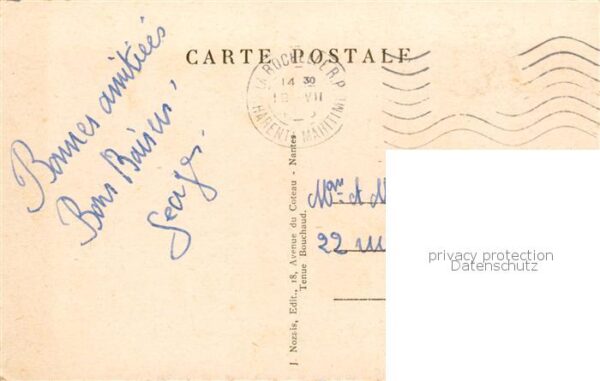 CARTE POSTALE
LA ROCHELLE R.P.
14 30
VII
CHARENTE MARITIME
Bonnes amitiés
Bons Baisers,
Georges.
J. Nozais, Edit., 18, Avenue du Coteau - Nantes
Tenue Bouchaud.
Mr et M
22
privacy protection
Datenschutz